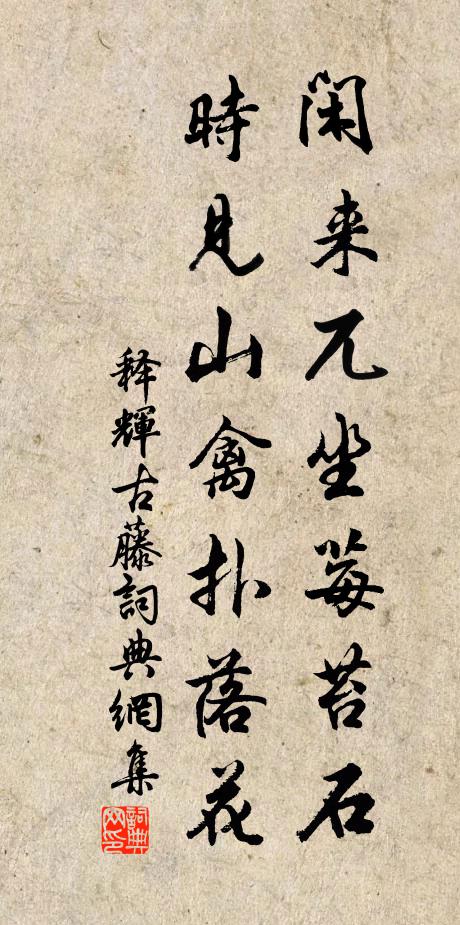 閑来兀坐莓苔石
時見山禽扑落花
释輝古藤詞典網集
詞典网印